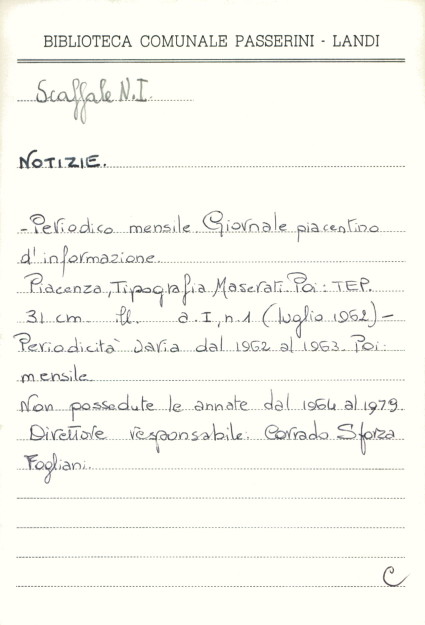 BIBLIOTECA COMUNALE PASSERINI - LANDI
Scaffale N.I
NOTIZIE.
- Periodico mensile. Giornale piacentino
d'informazione.
Piacenza, Tipografia Maserati. Poi: TEP.
31 cm. Ill. a.I, n.1 (luglio 1962) -
Periodicità varia dal 1962 al 1963. Poi:
mensile.
Non possedute le annate dal 1964 al 1979.
Direttore responsabile: Corrado Sforza
Fogliani.
C